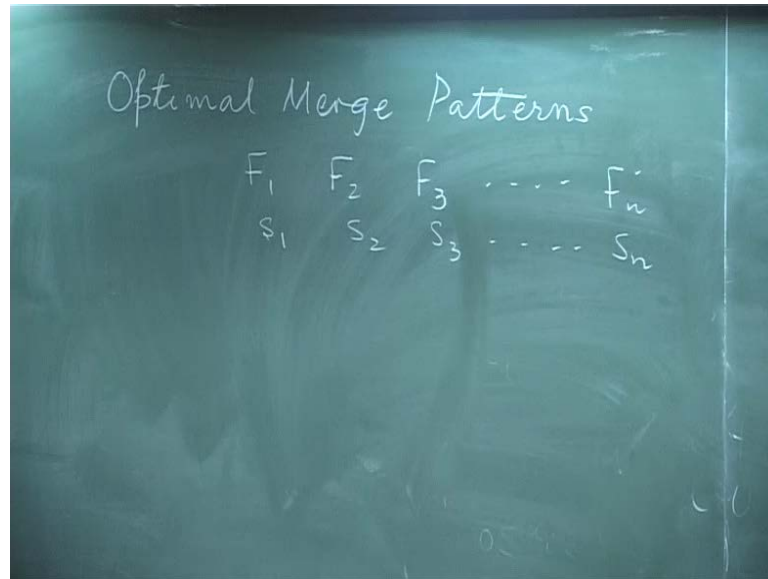 Optimal Merge Patterns
F₁ F₂ F₃ ..... Fₙ
S₁ S₂ S₃ ..... Sₙ